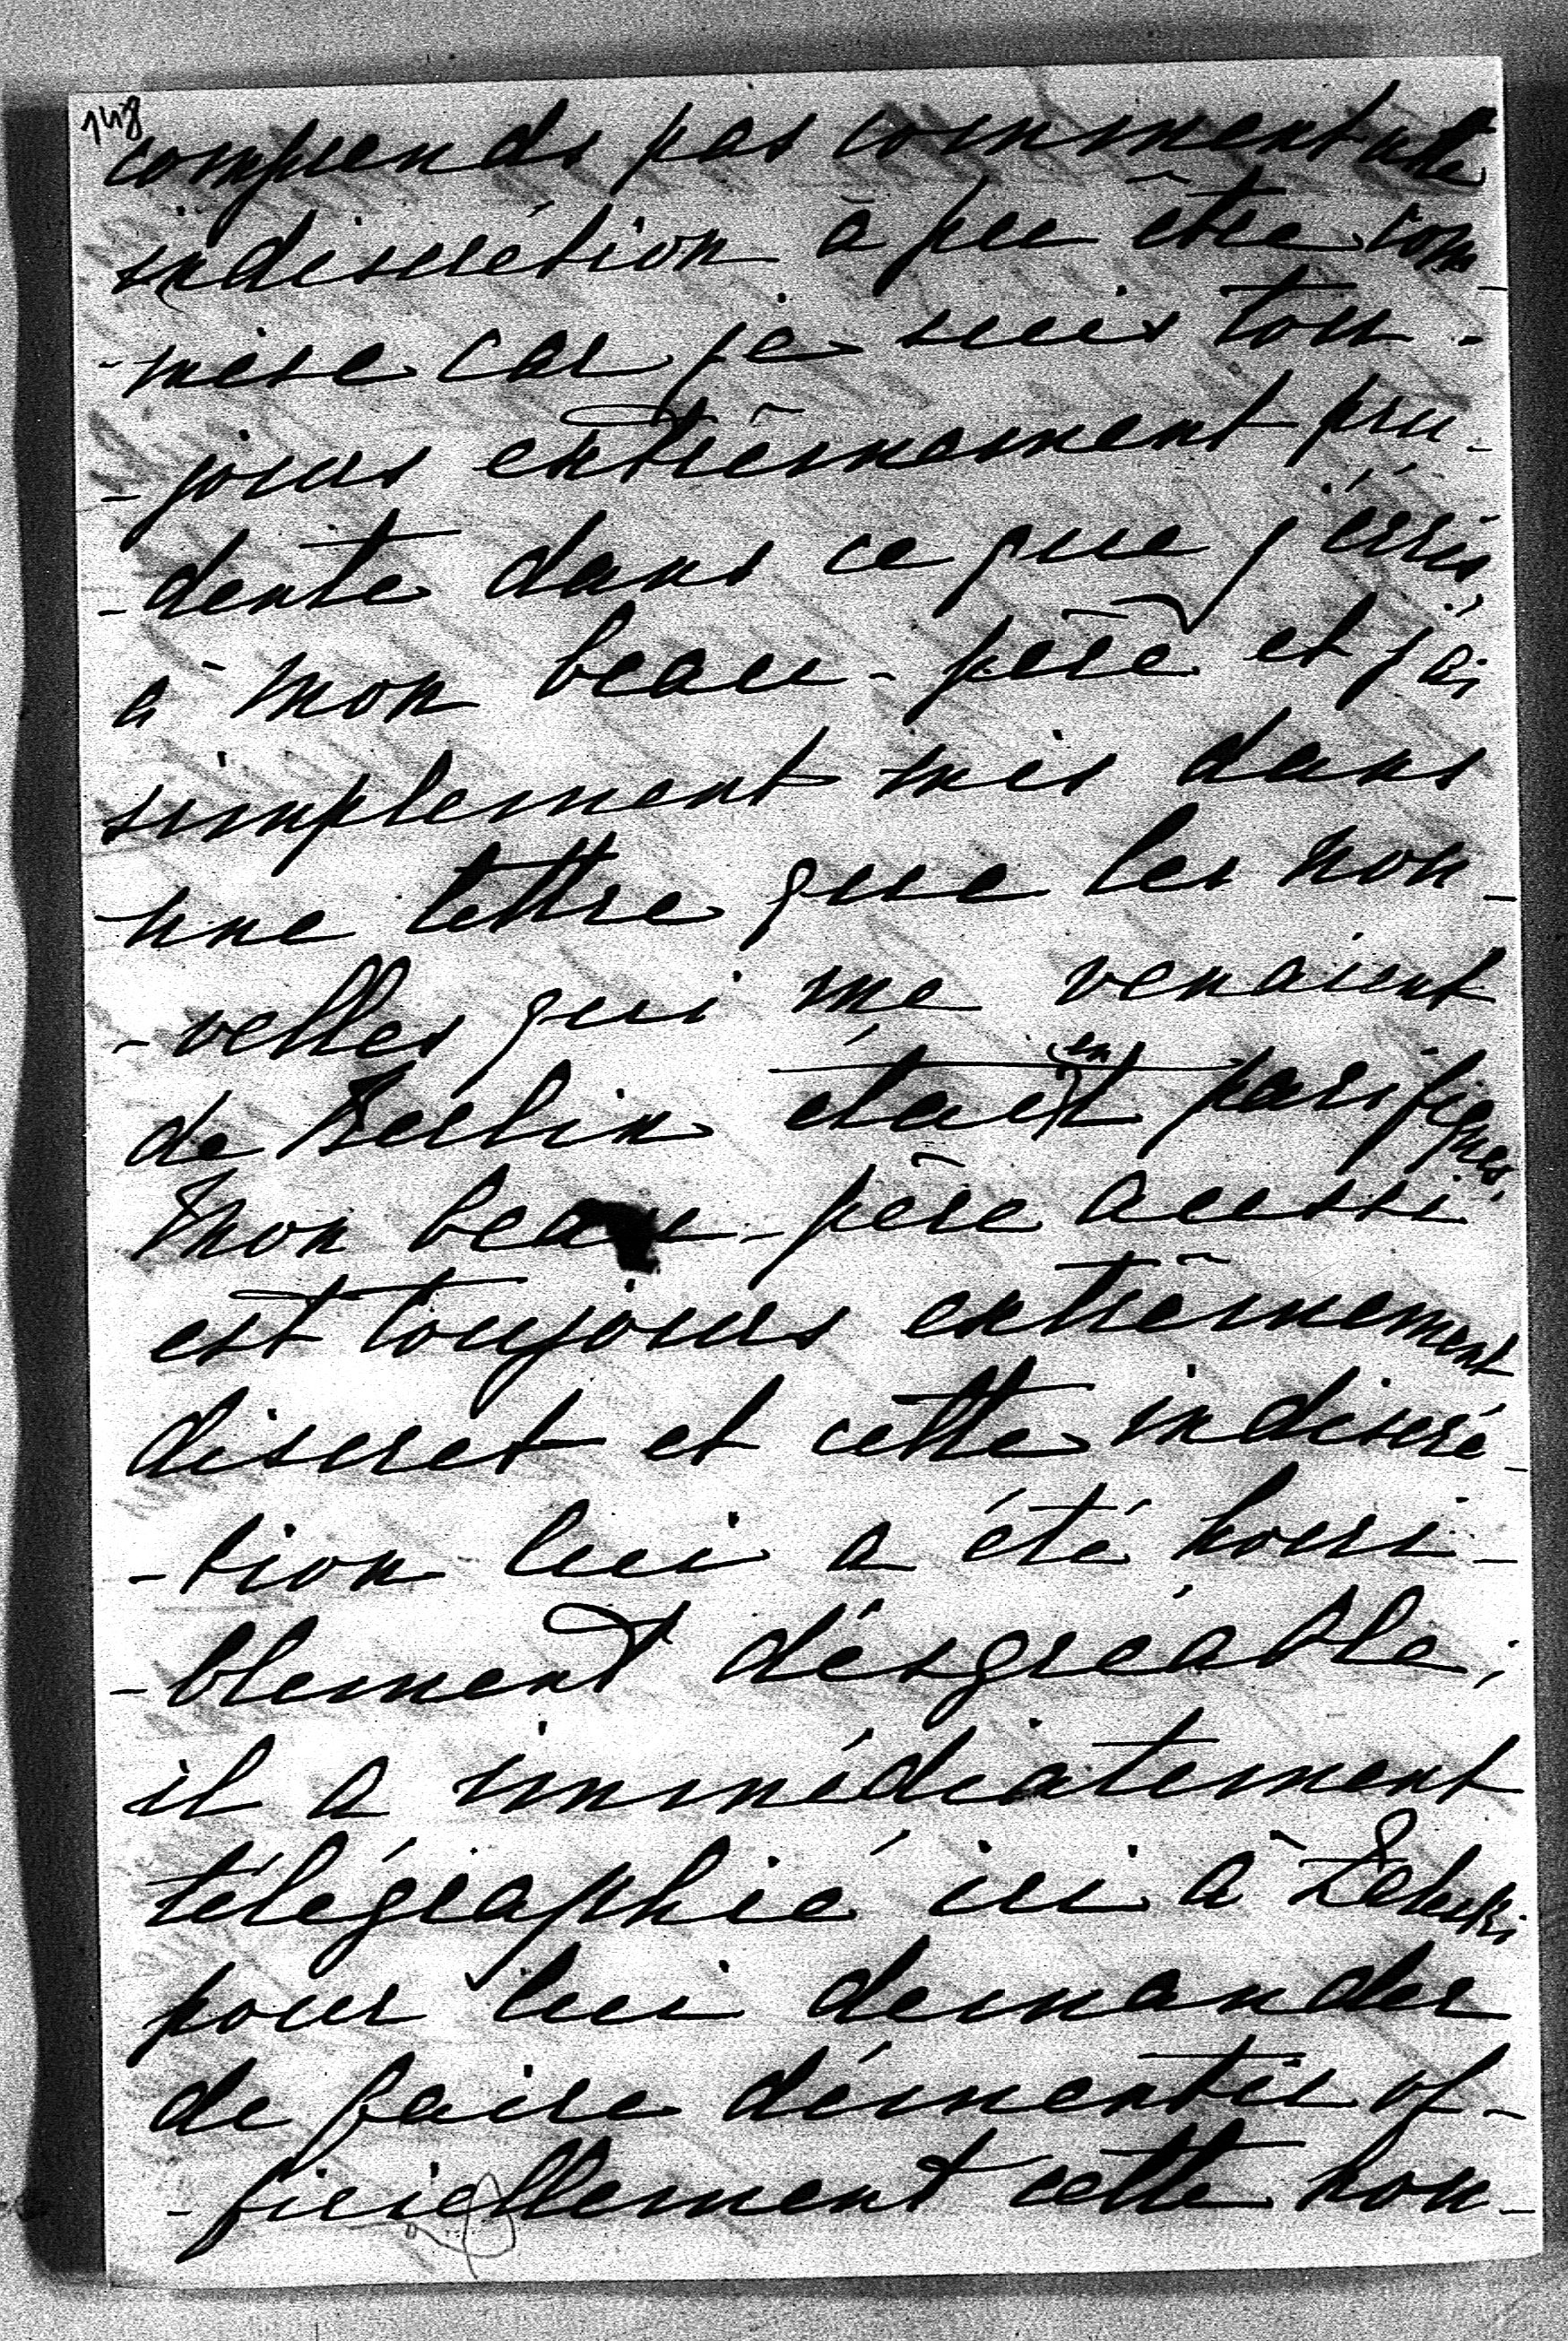 148
comprends pas comment cette
indiscrétion à pu être com
-mise car je suis tou-
-jours extrêmement pru-
-dente dans ce que j'écris
à mon beau-père et j'ai
simplement mis dans
une lettre que les nou-
-velles qui me venaient
de Berlin étaient pacifiques.
Mon beau-père aussi
est toujours extrêmement
discret et cette indiscré-
-tion lui a été horri-
-blement désgréable;
il a immédiatement
télégraphié ici à
pour lui demander
de faire démentir of-
-ficiellement cette nou-